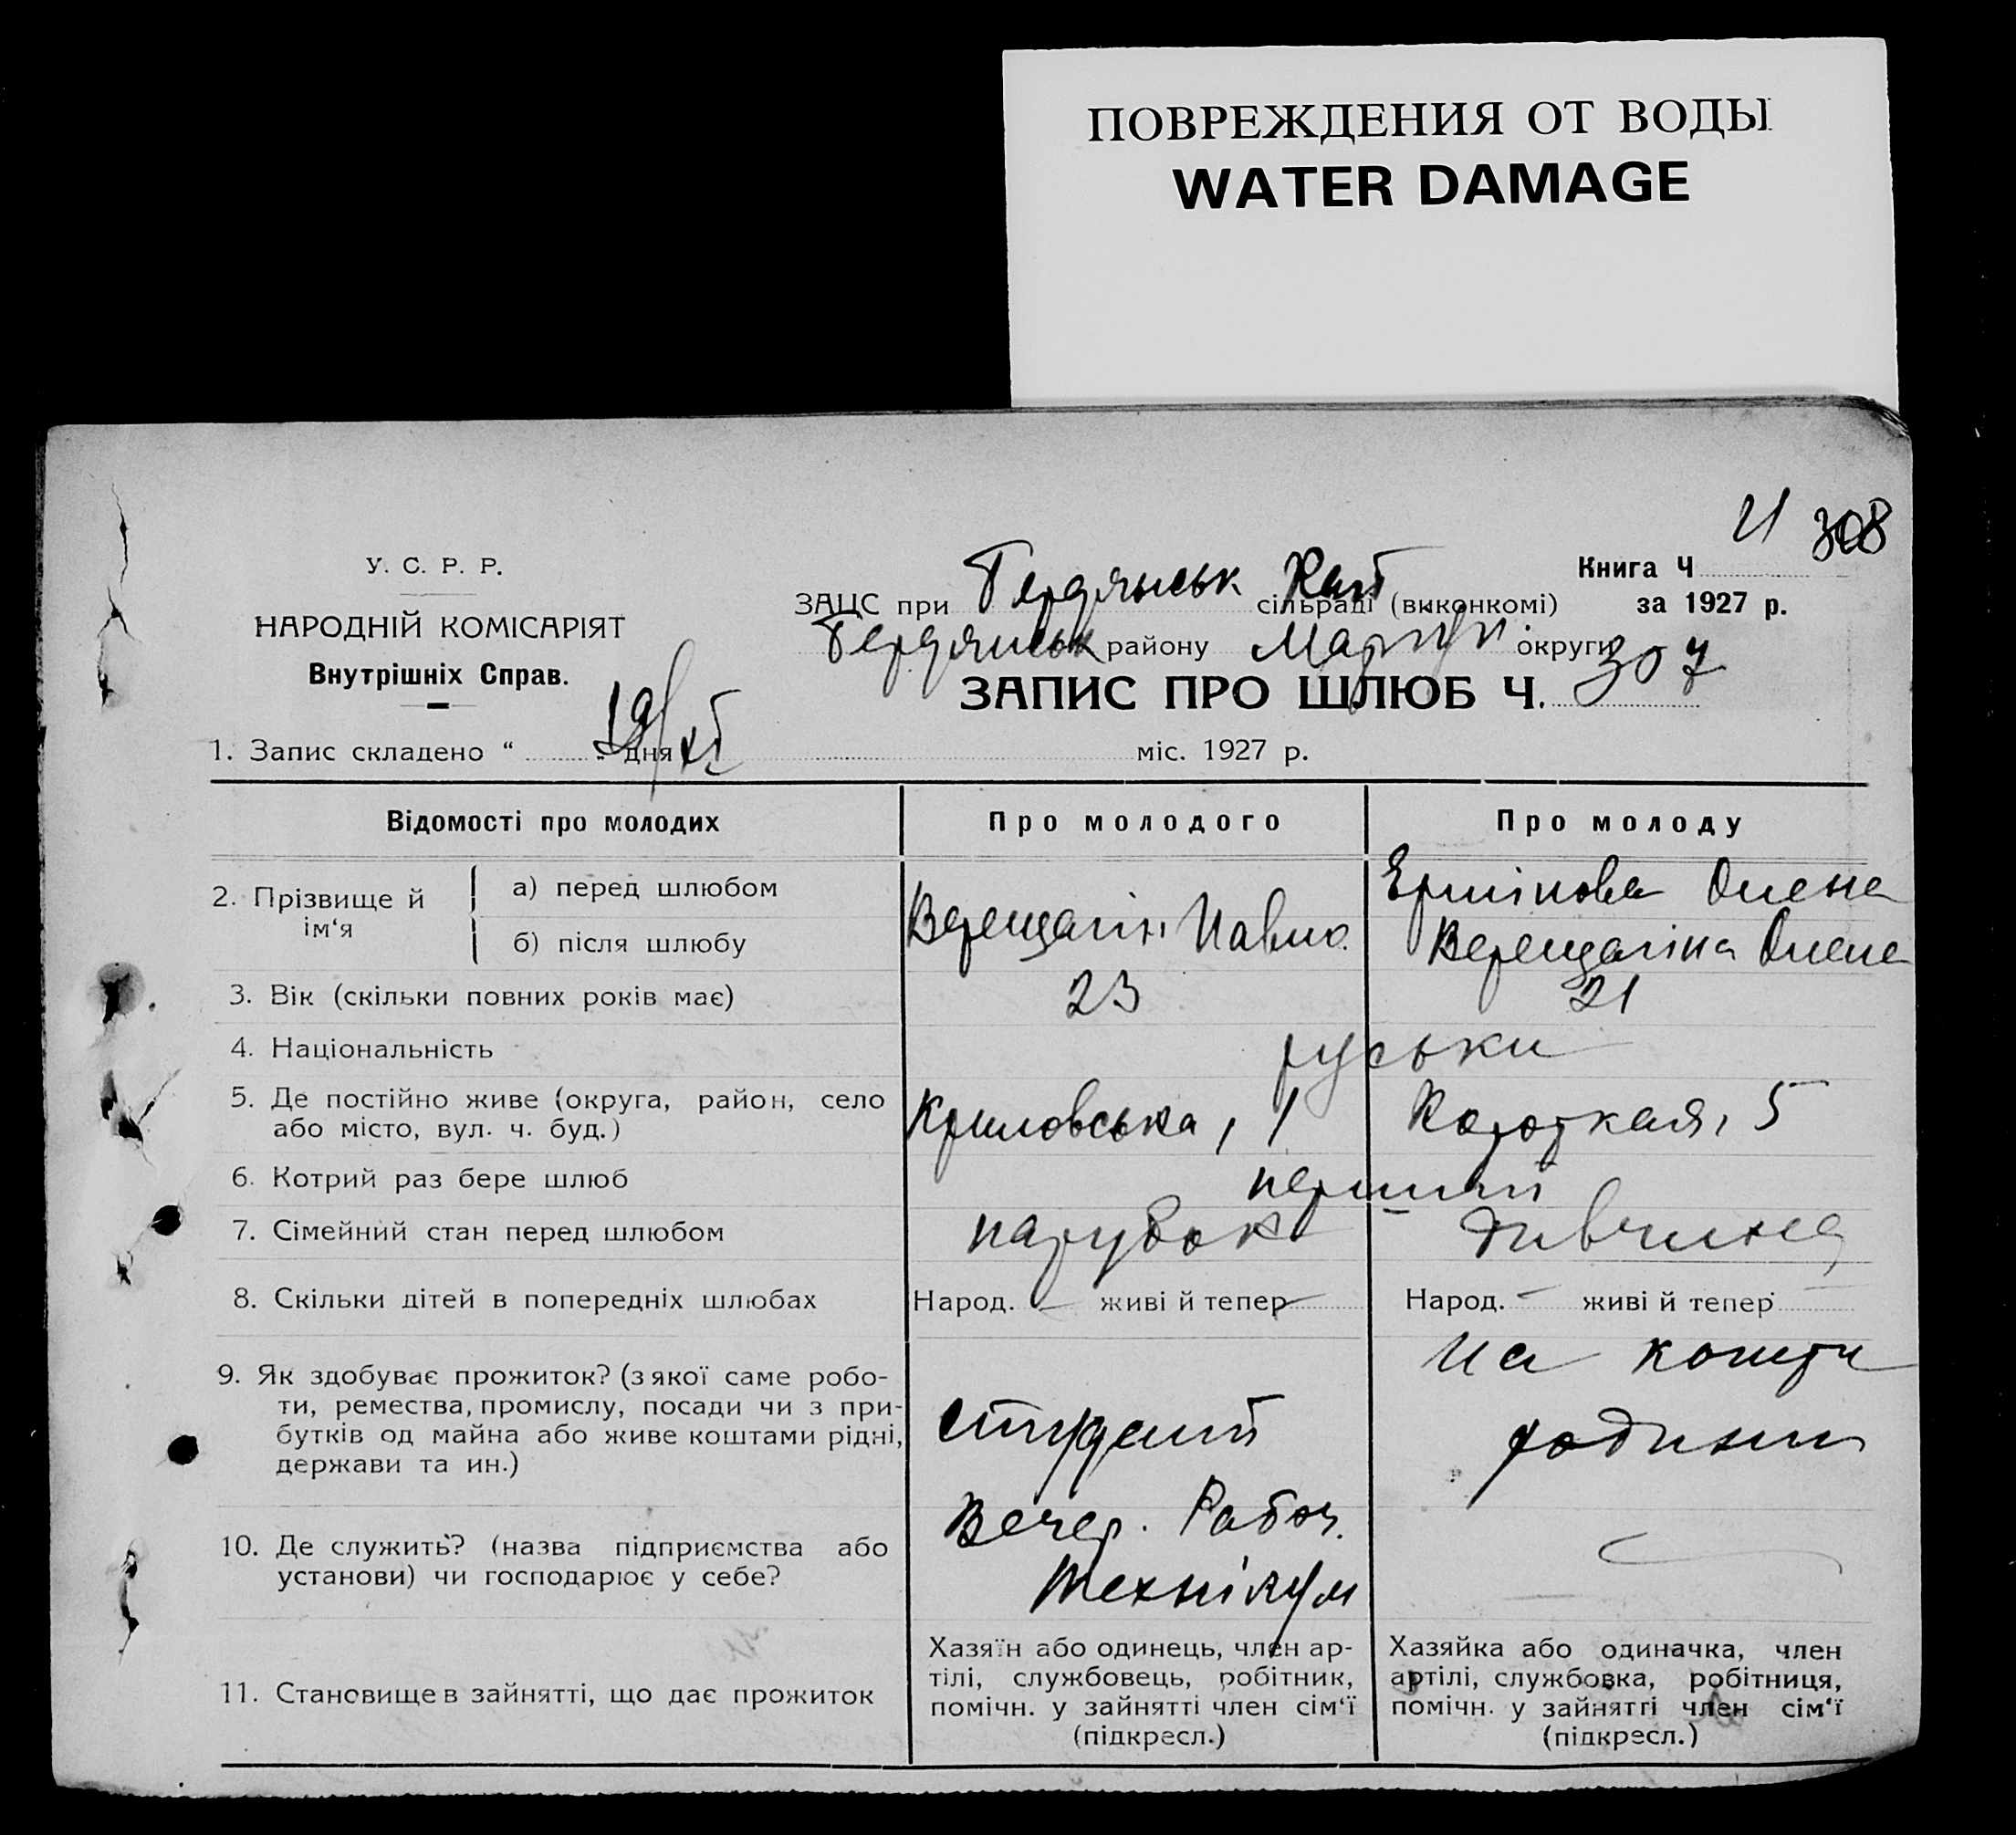 ПОВРЕЖДЕНИЯ ОТ ВОДЫ
WATER DAMAGE
308
У. С. Р. Р.
НАРОДНІЙ КОМІСАРІЯТ
Внутрішніх Справ.
Книга Ч
за 1927 р.
ЗАЦС при Бердянськ сільраді (виконкомі)
Бердянськ району Маріуп. округи
ЗАПИС ПРО ШЛЮБ Ч. 307
1. Запис складено “ 19/XI „ дня міс. 1927 р.
Відомості про молодих
Про молодого
Про молоду
2. Прізвище й ім‘я
а) перед шлюбом
б) після шлюбу
Верещагін Павло
Олена
Верещагіна Олена
3. Вік (скільки повних років має)
23
21
4. Національність
руські
5. Де постійно живе (округа, район, село
або місто, вул. ч. буд.)
Криловська, 1
Короткая, 5
6. Котрий раз бере шлюб
перший
7. Сімейний стан перед шлюбом
парубок
дивчина
8. Скільки дітей в попередніх шлюбах
Народ. — живі й тепер —
Народ. — живі й тепер
9. Як здобуває прожиток? (з якої саме робо-
ти, ремества, промислу, посади чи з при-
бутків од майна або живе коштами рідні,
держави та ин.)
студент
на кошти
родини
10. Де служить? (назва підприємства або
установи) чи господарює у себе?
Вечер. Рабоч.
Технікум
—
11. Становище в зайнятті, що дає прожиток
Хазяїн або одинець, член ар-
тілі, службовець, робітник,
помічн. у зайнятті член сім‘ї
(підкресл.)
Хазяйка або одиначка, член
артілі, службовка, робітниця,
помічн. у зайнятті член сім‘ї
(підкресл.)